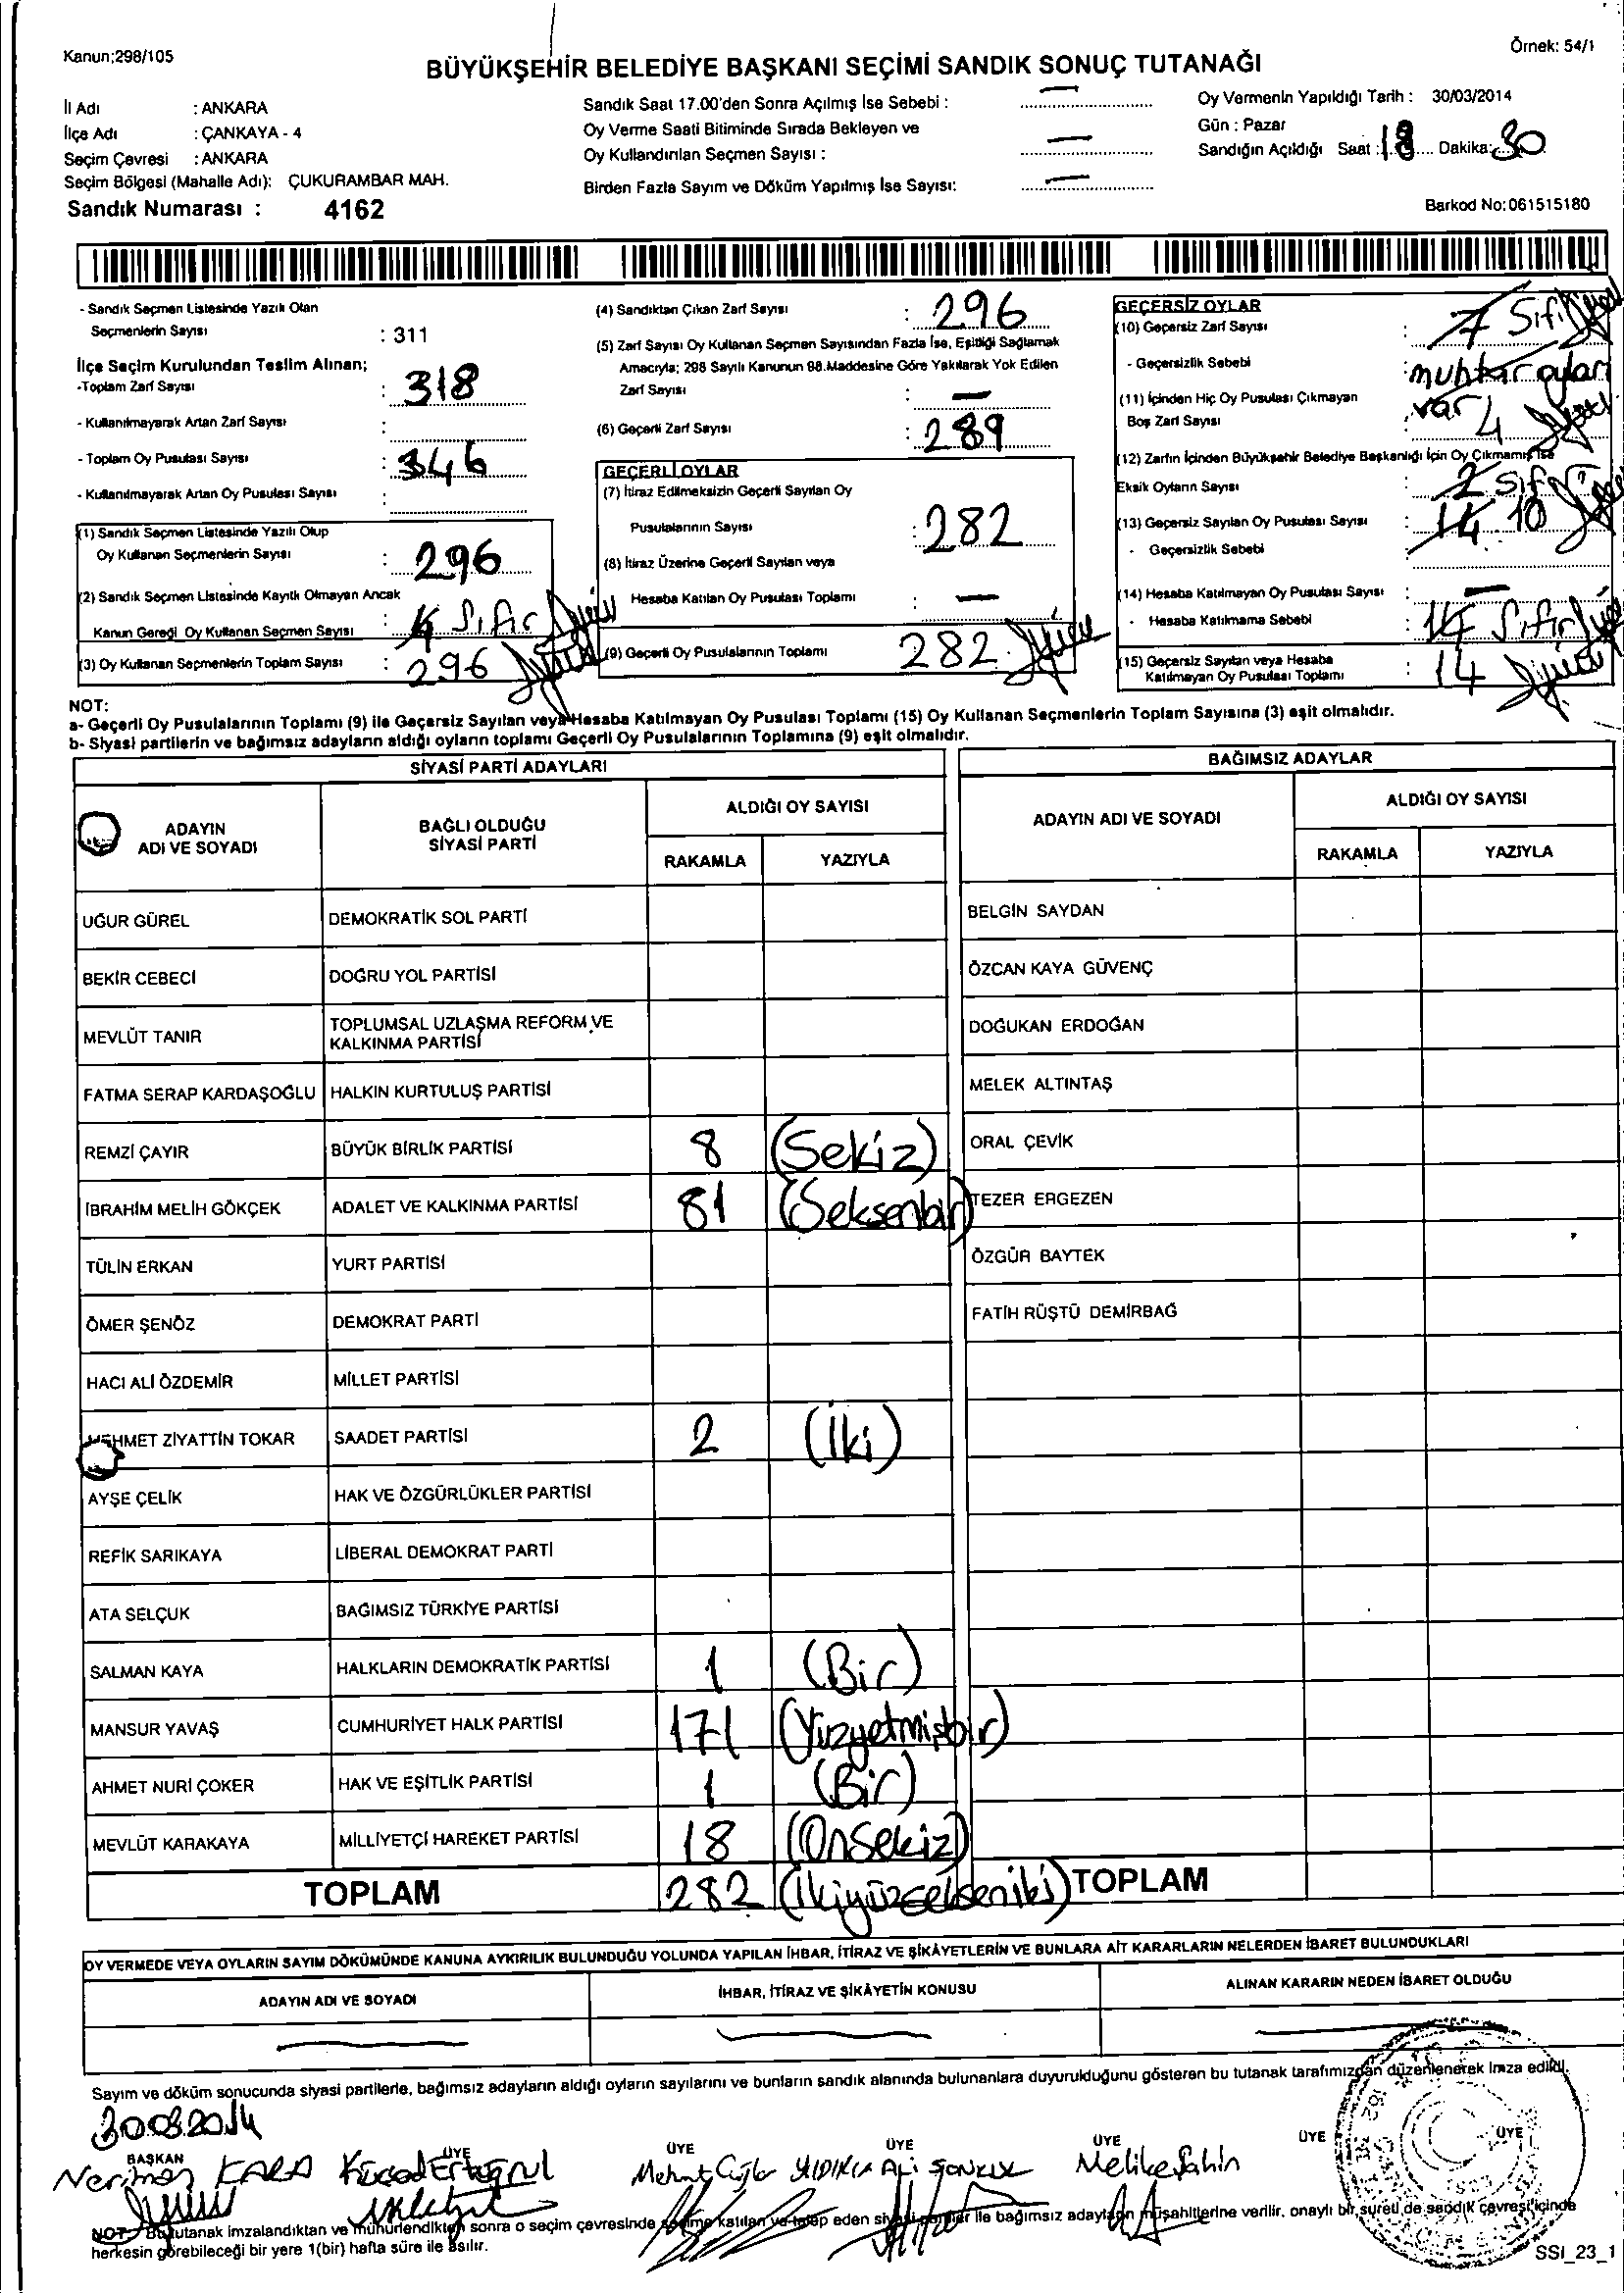 Kanun;298/105
Örnek: 54/1
BÜYÜKŞEHİR BELEDİYE BAŞKANI SEÇİMİ SANDIK SONUÇ TUTANAĞI
İl Adı : ANKARA
İlçe Adı : ÇANKAYA - 4
Seçim Çevresi : ANKARA
Seçim Bölgesi (Mahalle Adı): ÇUKURAMBAR MAH.
Sandık Numarası : 4162
Sandık Saat 17.00'den Sonra Açılmış İse Sebebi : —
Oy Verme Saati Bitiminde Sırada Bekleyen ve
Oy Kullandırılan Seçmen Sayısı : —
Birden Fazla Sayım ve Döküm Yapılmış İse Sayısı: —
Oy Vermenin Yapıldığı Tarih : 30/03/2014
Gün : Pazar
Sandığın Açıldığı Saat : 18 Dakika: 30
Barkod No:061515180
- Sandık Seçmen Listesinde Yazılı Olan
Seçmenlerin Sayısı : 311
İlçe Seçim Kurulundan Teslim Alınan;
-Toplam Zarf Sayısı : 318
- Kullanılmayarak Artan Zarf Sayısı :
- Toplam Oy Pusulası Sayısı : 346
- Kullanılmayarak Artan Oy Pusulası Sayısı :
(1) Sandık Seçmen Listesinde Yazılı Olup
Oy Kullanan Seçmenlerin Sayısı : 296
(2) Sandık Seçmen Listesinde Kayıtlı Olmayan Ancak
Kanun Gereği Oy Kullanan Seçmen Sayısı : 4 Sıfır
(3) Oy Kullanan Seçmenlerin Toplam Sayısı : 296
(4) Sandıktan Çıkan Zarf Sayısı : 296
(5) Zarf Sayısı Oy Kullanan Seçmen Sayısından Fazla İse, Eşitliği Sağlamak
Amacıyla; 298 Sayılı Kanunun 98.Maddesine Göre Yakılarak Yok Edilen
Zarf Sayısı : —
(6) Geçerli Zarf Sayısı : 289
GEÇERLİ OYLAR
(7) İtiraz Edilmeksizin Geçerli Sayılan Oy
Pusulalarının Sayısı : 282
(8) İtiraz Üzerine Geçerli Sayılan veya
Hesaba Katılan Oy Pusulası Toplamı : —
(9) Geçerli Oy Pusulalarının Toplamı 282
GEÇERSİZ OYLAR
(10) Geçersiz Zarf Sayısı : 7 Sıfır
- Geçersizlik Sebebi : muhtar oyları
(11) İçinden Hiç Oy Pusulası Çıkmayan var
Boş Zarf Sayısı : 4
(12) Zarfın İçinden Büyükşehir Belediye Başkanlığı İçin Oy Çıkmamış İse
Eksik Oyların Sayısı : 2 Sıfır
(13) Geçersiz Sayılan Oy Pusulası Sayısı : 14 10
- Geçersizlik Sebebi
(14) Hesaba Katılmayan Oy Pusulası Sayısı : —
- Hesaba Katılmama Sebebi : 14 Sıfır
(15) Geçersiz Sayılan veya Hesaba
Katılmayan Oy Pusulası Toplamı : 14
NOT:
a- Geçerli Oy Pusulalarının Toplamı (9) ile Geçersiz Sayılan veya Hesaba Katılmayan Oy Pusulası Toplamı (15) Oy Kullanan Seçmenlerin Toplam Sayısına (3) eşit olmalıdır.
b- Siyasi partilerin ve bağımsız adayların aldığı oyların toplamı Geçerli Oy Pusulalarının Toplamına (9) eşit olmalıdır.
SİYASİ PARTİ ADAYLARI
ADAYIN ADI VE SOYADI BAĞLI OLDUĞU SİYASİ PARTİ ALDIĞI OY SAYISI
RAKAMLA YAZIYLA
UĞUR GÜREL DEMOKRATİK SOL PARTİ
BEKİR CEBECİ DOĞRU YOL PARTİSİ
MEVLÜT TANIR TOPLUMSAL UZLAŞMA REFORM VE KALKINMA PARTİSİ
FATMA SERAP KARDAŞOĞLU HALKIN KURTULUŞ PARTİSİ
REMZİ ÇAYIR BÜYÜK BİRLİK PARTİSİ 8 (Sekiz)
İBRAHİM MELİH GÖKÇEK ADALET VE KALKINMA PARTİSİ 81 (Seksenbir)
TÜLİN ERKAN YURT PARTİSİ
ÖMER ŞENÖZ DEMOKRAT PARTİ
HACI ALİ ÖZDEMİR MİLLET PARTİSİ
MEHMET ZİYATTİN TOKAR SAADET PARTİSİ 2 (İki)
AYŞE ÇELİK HAK VE ÖZGÜRLÜKLER PARTİSİ
REFİK SARIKAYA LİBERAL DEMOKRAT PARTİ
ATA SELÇUK BAĞIMSIZ TÜRKİYE PARTİSİ
SALMAN KAYA HALKLARIN DEMOKRATİK PARTİSİ 1 (Bir)
MANSUR YAVAŞ CUMHURİYET HALK PARTİSİ 171 (Yüzyetmişbir)
AHMET NURİ ÇOKER HAK VE EŞİTLİK PARTİSİ 1 (Bir)
MEVLÜT KARAKAYA MİLLİYETÇİ HAREKET PARTİSİ 18 (Onsekiz)
TOPLAM 282 (İkiyüzsekseniki)
BAĞIMSIZ ADAYLAR
ADAYIN ADI VE SOYADI ALDIĞI OY SAYISI
RAKAMLA YAZIYLA
BELGİN SAYDAN
ÖZCAN KAYA GÜVENÇ
DOĞUKAN ERDOĞAN
MELEK ALTINTAŞ
ORAL ÇEVİK
TEZER ERGEZEN
ÖZGÜR BAYTEK
FATİH RÜŞTÜ DEMİRBAĞ
TOPLAM
OY VERMEDE VEYA OYLARIN SAYIM DÖKÜMÜNDE KANUNA AYKIRILIK BULUNDUĞU YOLUNDA YAPILAN İHBAR, İTİRAZ VE ŞİKÂYETLERİN VE BUNLARA AİT KARARLARIN NELERDEN İBARET BULUNDUKLARI
ADAYIN ADI VE SOYADI İHBAR, İTİRAZ VE ŞİKÂYETİN KONUSU ALINAN KARARIN NEDEN İBARET OLDUĞU
Sayım ve döküm sonucunda siyasi partilerle, bağımsız adayların aldığı oyların sayılarını ve bunların sandık alanında bulunanlara duyurulduğunu gösteren bu tutanak tarafımızdan düzenlenerek imza edildi.
30.03.2014
BAŞKAN ÜYE ÜYE ÜYE ÜYE ÜYE ÜYE
Neriman KARA Kürşad Ertuğrul Mehmet YILDIRIM Melike Şahin
NOT: Bu tutanak imzalandıktan ve mühürlendikten sonra o seçim çevresinde seçime katılan ve talep eden siyasi partiler ile bağımsız adayların müşahitlerine verilir, onaylı bir sureti de sandık çevresi içinde
herkesin görebileceği bir yere 1(bir) hafta süre ile asılır.
SSI_23_1